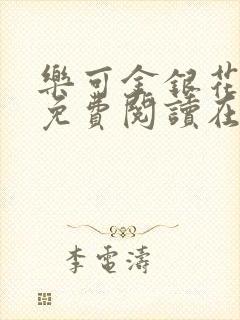 樂可金銀花
免費閱讀在
李電濤